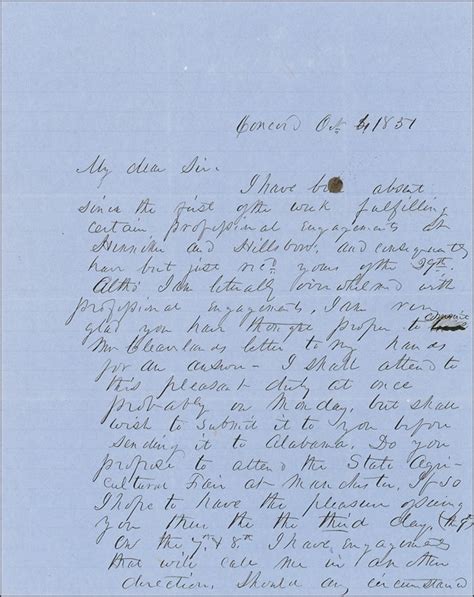 Concord Oct 4 1851
My dear Sir.
I have b absent
since the first of the week fulfilling
certain professional engagements at
Henniker and Hillsboro, and consequently
have but just rec'd yours of the 29th.
Altho I am literally overwhelmed with
professional engagements, I am very
glad you have thought proper to commit
Mr Cleavelands letter to my hands
for an answer - I shall attend to
this pleasant duty at once
probably on Monday, but shall
wish to submit it to you before
sending it to Alabama. Do you
propose to attend the State Agri-
cultural Fair at Manchester, If so
I hope to have the pleasure of seeing
you then the the third day, (the 9th)
On the 7th & 8th I have engagements
that will call me in an other
direction, should any circumstance